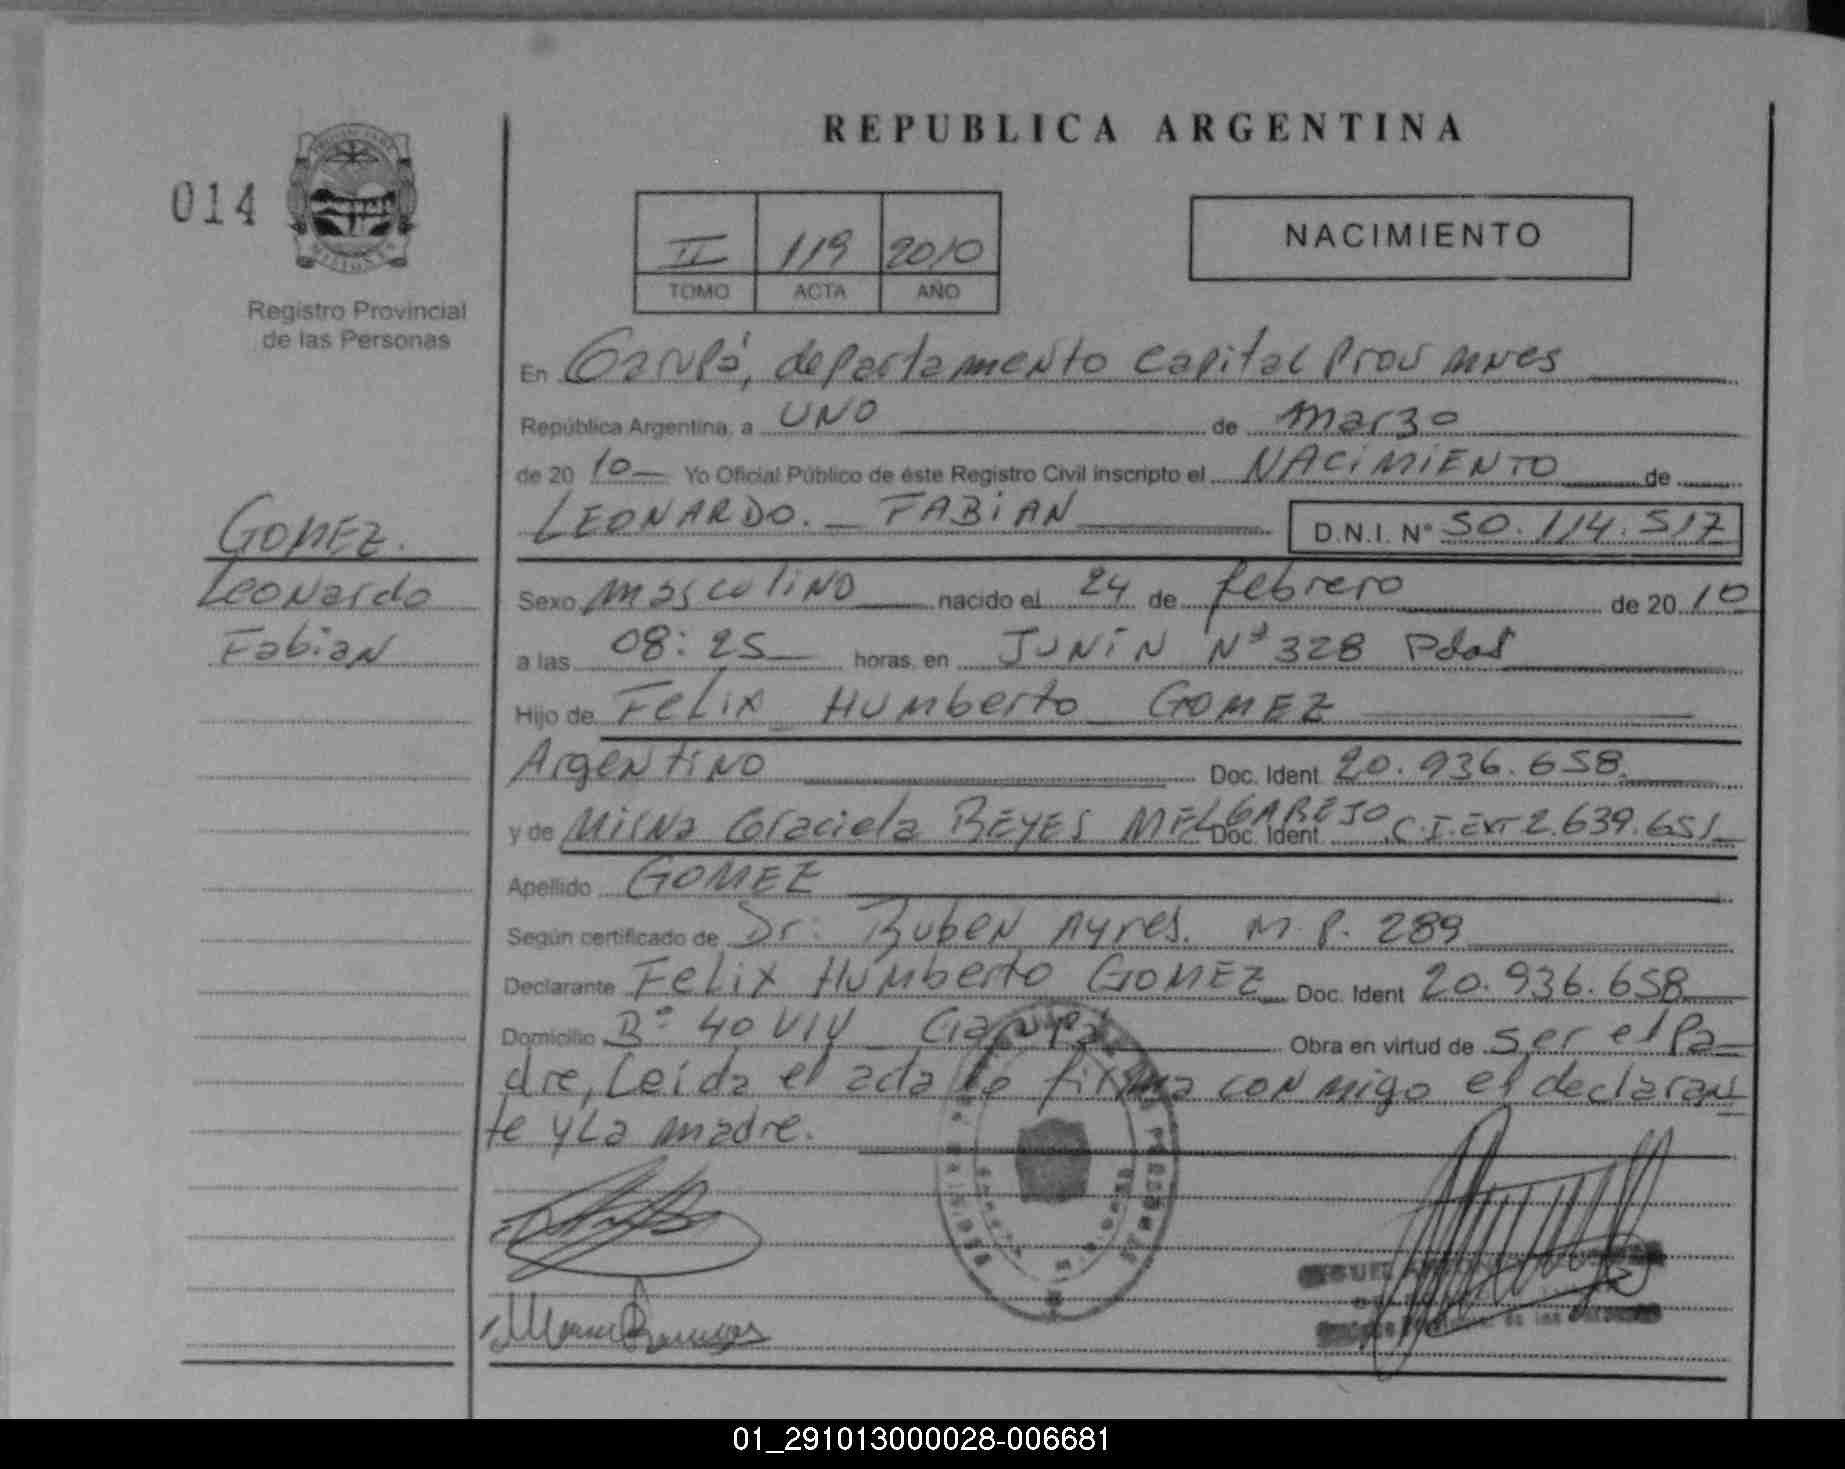 REPUBLICA ARGENTINA
014
Registro Provincial
de las Personas
II 119 2010
TOMO ACTA AÑO
NACIMIENTO
En Garupá, departamento Capital Prov Mnes
República Argentina, a UNO de marzo
de 20 10 Yo Oficial Público de éste Registro Civil inscripto el NACIMIENTO de
LEONARDO. FABIAN D.N.I. N° 50.114.517
GOMEZ.
Leonardo
Fabian
Sexo masculino nacido el 24 de febrero de 20 10
a las 08:25 horas, en JUNIN N° 328 Pdas
Hijo de Felix Humberto GOMEZ
Argentino Doc. Ident 20.936.658.
y de Mirna Graciela REYES MELGAREJO Doc. Ident C.I.EXT 2.639.651
Apellido GOMEZ
Según certificado de Dr: Ruben Ayres. M.P. 289
Declarante Felix Humberto GOMEZ Doc. Ident 20.936.658
Domicilio B° 40 VIV Garupá Obra en virtud de ser el Pa
dre, Leída el acta la firma con migo el declaran
te y La madre.
01_291013000028-006681